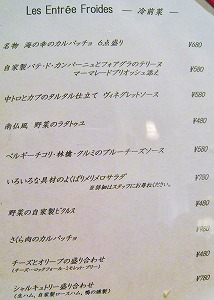 Les Entrée Froides — 冷前菜 —
名物 海の幸のカルパッチョ 6点盛り ¥680
自家製パテ・ド・カンパーニュとフォアグラのテリーヌ ¥580
マーマレードブリオッシュ添え
中トロとカブのタルタル仕立て ヴィネグレットソース ¥580
南仏風 野菜のラタトゥユ ¥480
ベルギーチコリ・林檎・クルミのブルーチーズソース ¥580
いろいろな具材のよくばりメリメロサラダ ¥780
※詳細はスタッフにお尋ねください。
野菜の自家製ピクルス ¥480
さくら肉のカルパッチョ
チーズとオリーブの盛り合わせ ¥480
(チーズ・ロックフォール・ミモレット・ブリー)
シャルキュトリー盛り合わせ ¥780
(生ハム、自家製ロースハム、鴨の燻製)